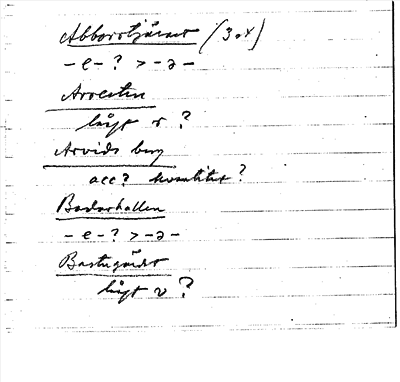 Abborrtjärnet (3.x)
- e - ? > - ə -
Arvesten
lågt r ?
Arvids berg
acc? kvantitet ?
Badarhallen
- e - ? > - ə -
Bastugärdet
lågt v ?